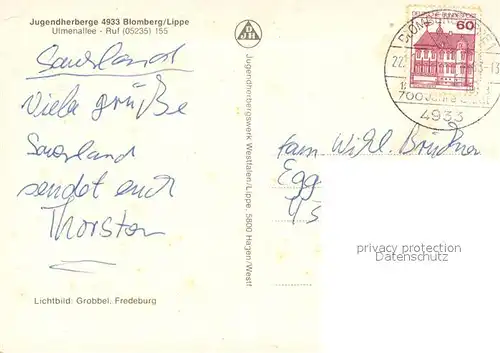 Jugendherberge 4933 Blomberg/Lippe
Ulmenallee - Ruf (05235) 155
Saurland
Viele grüße
Saurland
sendet euch
Thorsten
Lichtbild: Grobbel, Fredeburg
DJH
Jugendherbergswerk Westfalen/Lippe, 5800 Hagen/Westf
DEUTSCHE BUNDESPOST
60
22.
-13
700 Jahre
4933
Fam. Wilh. Brückner
Egg
privacy protection
Datenschutz